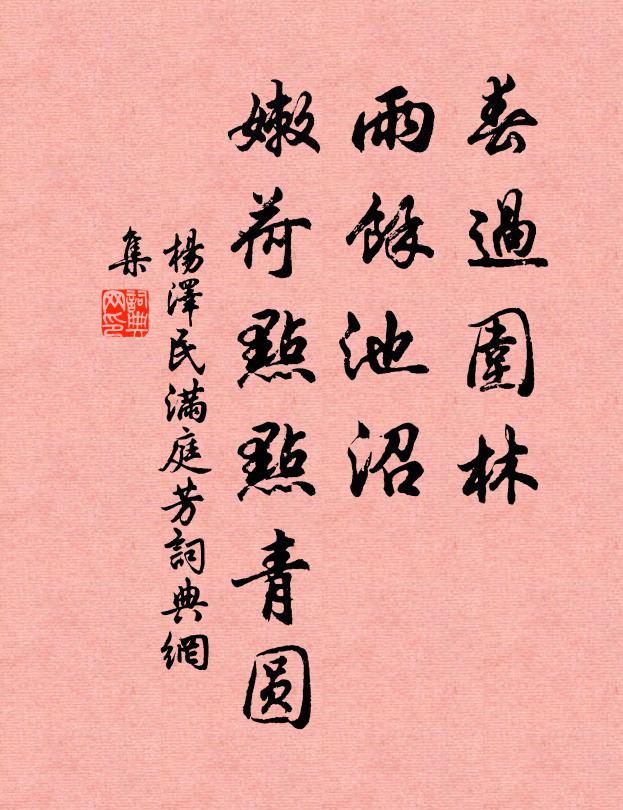 春過園林
雨餘池沼
嫩荷點點青圓
楊澤民滿庭芳詞典網
集
詞典
网印